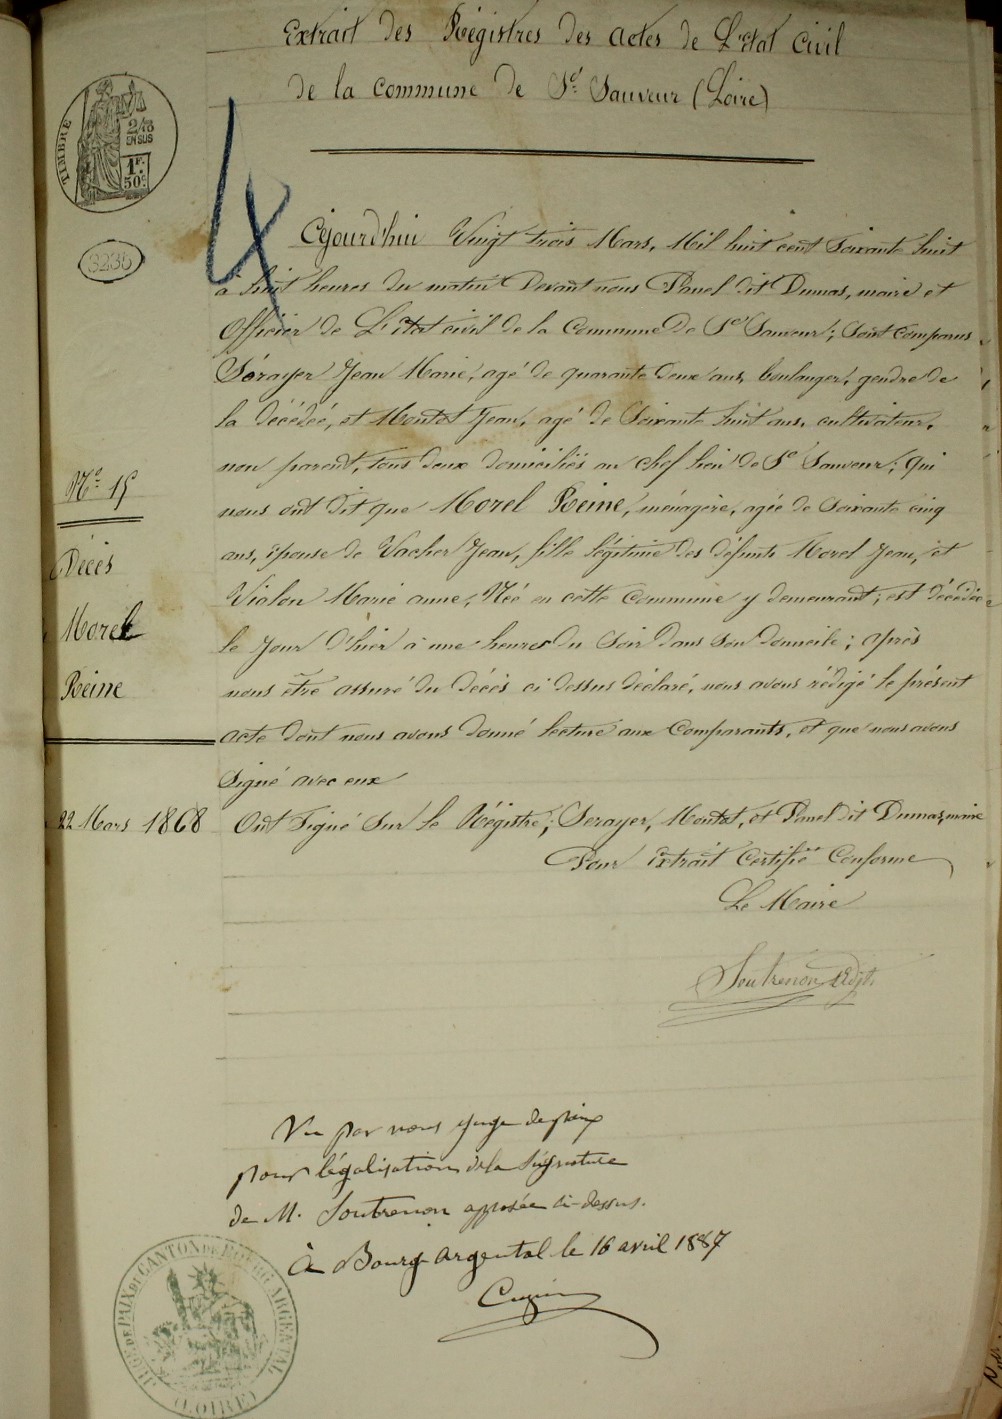 Extrait des Régistres des actes de L'état Civil
de la commune de St. Sauveur (Loire)
TIMBRE
2/10
EN SUS
1F.
50c.
3236
4
Cejourd'hui Vingt trois Mars, Mil huit cent soixante huit
à huit heures du matin Devant nous Panel dit Dumas, maire et
Officier de L'état civil de la commune de St Sauveur; sont comparus
Sérayer Jean Marie, agé de quarante deux ans, boulanger, gendre de
la décédée, et Montot Jean, agé de soixante huit ans, cultivateur,
non parent, tous deux domiciliés au chef lieu de St Sauveur; qui
nous ont dit que Morel Reine, ménagère, agée de soixante cinq
ans, épouse de Vacher Jean, fille légitime des défunts Morel Jean, et
Vialon Marie anne, Née en cette commune y demeurant, est décédée
le jour d'hier à une heure du soir dans son domicile; après
nous être assuré du décès ci dessus déclaré, nous avons rédigé le présent
acte dont nous avons donné lecture aux Comparants, et que nous avons
signé avec eux
Ont signé sur le Régistre; Serayer, Montot, et Panel dit Dumas, maire
Pour extrait certifié conforme
Le Maire
Soutrenon Adjt.
No 15
Décès
Morel
Reine
22 Mars 1868
Vu par nous juge de paix
pour légalisation de la signature
de M. Soutrenon apposée ci-dessus.
à Bourg-argental le 16 avril 1887
JUGE DE PAIX DU CANTON DE BOURG ARGENTAL
(LOIRE)